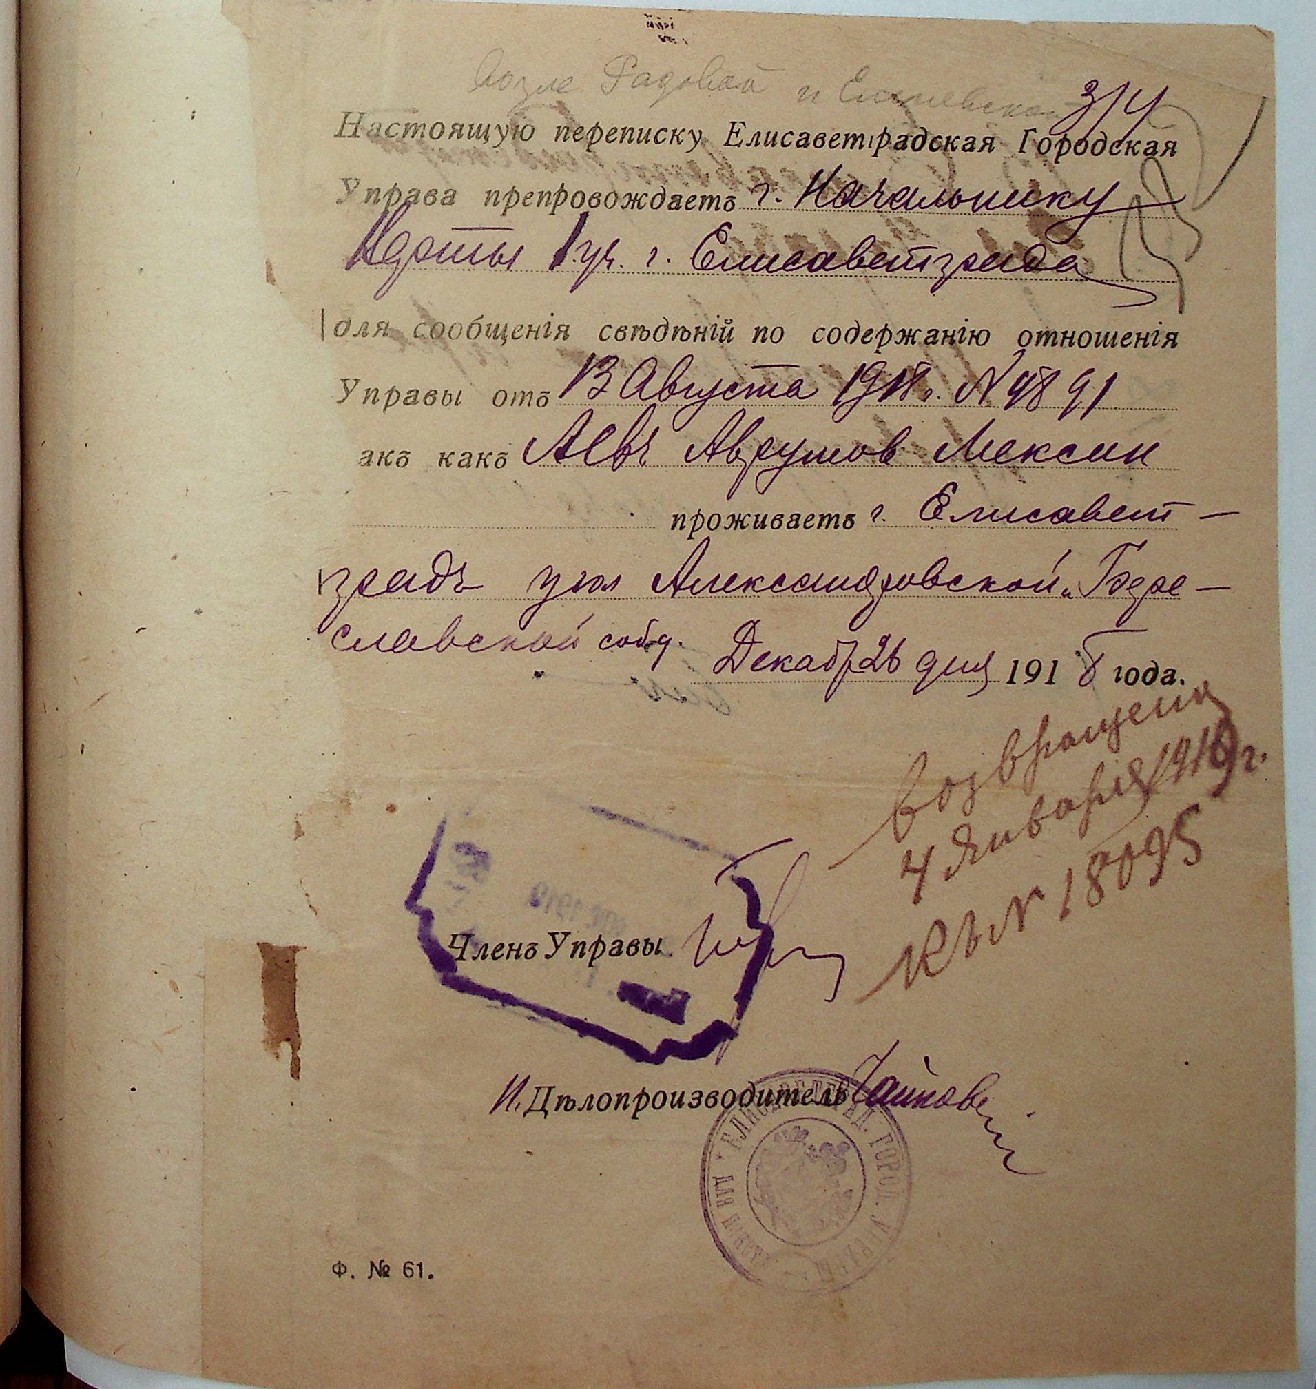 возле Садовой и
3/У
Настоящую переписку Елисаветградская Городская
Управа препровождаетъ г. Начальнику
1 уч. г. Елисаветграда
для сообщенія свѣдѣній по содержанію отношенія
Управы отъ 13 Августа 1918 г. № 4891
акъ какъ Левъ Аврумов Мексин
проживаетъ г. Елисавет-
градъ угол Александровской и
славской
Декабр 26 дня 1918 года.
возвращена
4 Января 1919 г.
къ № 18095
Членъ Управы
И. Дѣлопроизводитель
ЕЛИСАВЕТГРАД. ГОРОД. УПРАВЫ
Ф. № 61.